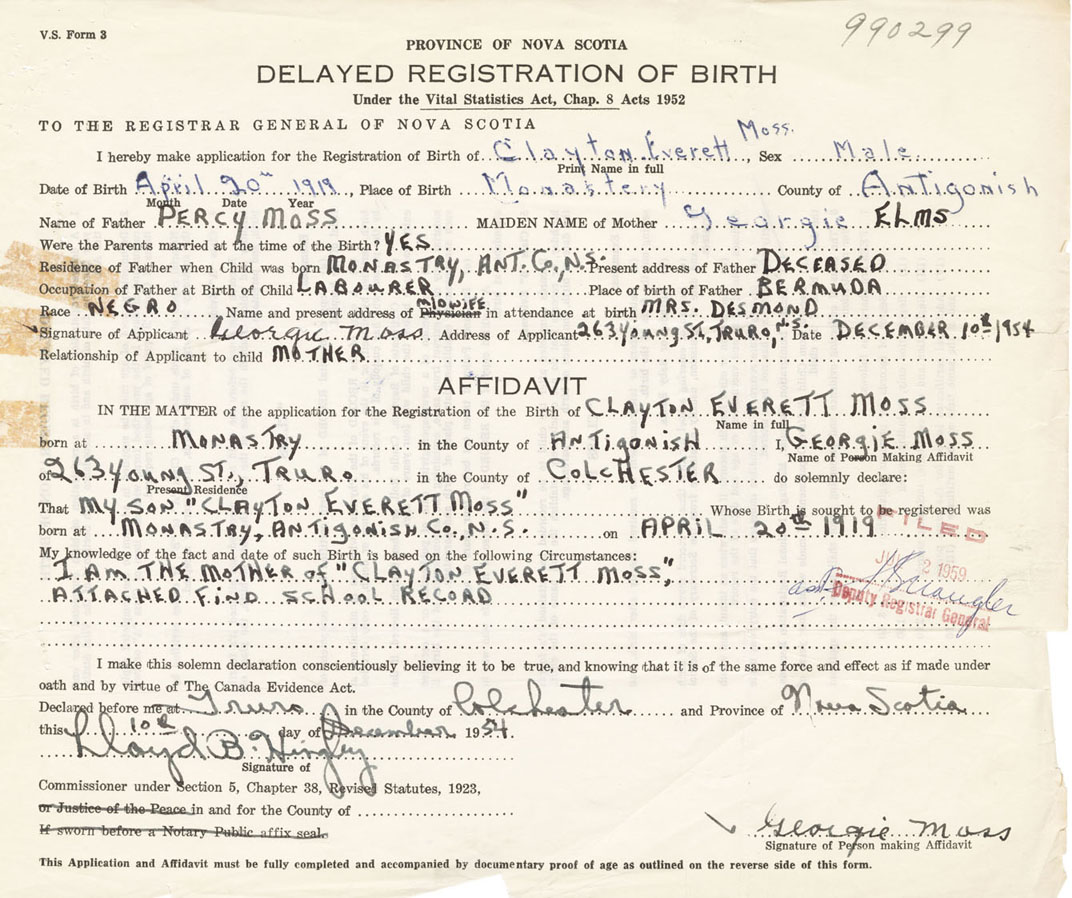 V.S. Form 3
990299
PROVINCE OF NOVA SCOTIA
DELAYED REGISTRATION OF BIRTH
Under the Vital Statistics Act, Chap. 8 Acts 1952
TO THE REGISTRAR GENERAL OF NOVA SCOTIA
I hereby make application for the Registration of Birth of Clayton Everett Moss., Sex Male
Print Name in full
Date of Birth April 20th 1919, Place of Birth Monastery County of Antigonish
Month Date Year
Name of Father PERCY MOSS MAIDEN NAME of Mother Georgie ELMS
Were the Parents married at the time of the Birth? YES
Residence of Father when Child was born MONASTRY, ANT. CO., N.S. Present address of Father DECEASED
Occupation of Father at Birth of Child LABOURER Place of birth of Father BERMUDA
Race NEGRO Name and present address of Physician MIDWIFE in attendance at birth MRS. DESMOND
Signature of Applicant Georgie Moss Address of Applicant 263 Young St., TRURO, N.S. Date DECEMBER 10th, 1954
Relationship of Applicant to child MOTHER
AFFIDAVIT
IN THE MATTER of the application for the Registration of the Birth of CLAYTON EVERETT MOSS
Name in full
born at MONASTRY in the County of ANTIGONISH I, GEORGIE MOSS
Name of Person Making Affidavit
of 263 Young ST., TRURO in the County of COLCHESTER do solemnly declare:
Present Residence
That MY SON "CLAYTON EVERETT MOSS" Whose Birth is sought to be registered was
born at MONASTRY, ANTIGONISH CO., N.S. on APRIL 20th 1919
FILED
My knowledge of the fact and date of such Birth is based on the following Circumstances:
I AM THE MOTHER OF "CLAYTON EVERETT MOSS",
2 1959
ATTACHED FIND SCHOOL RECORD
Deputy Registrar General
I make this solemn declaration conscientiously believing it to be true, and knowing that it is of the same force and effect as if made under
oath and by virtue of The Canada Evidence Act.
Declared before me at Truro in the County of Colchester and Province of Nova Scotia
this 10th day of December 1954.
Lloyd B. Hingley
Signature of
Commissioner under Section 5, Chapter 38, Revised Statutes, 1923,
or Justice of the Peace in and for the County of
If sworn before a Notary Public affix seal.
Georgie Moss
Signature of Person making Affidavit
This Application and Affidavit must be fully completed and accompanied by documentary proof of age as outlined on the reverse side of this form.